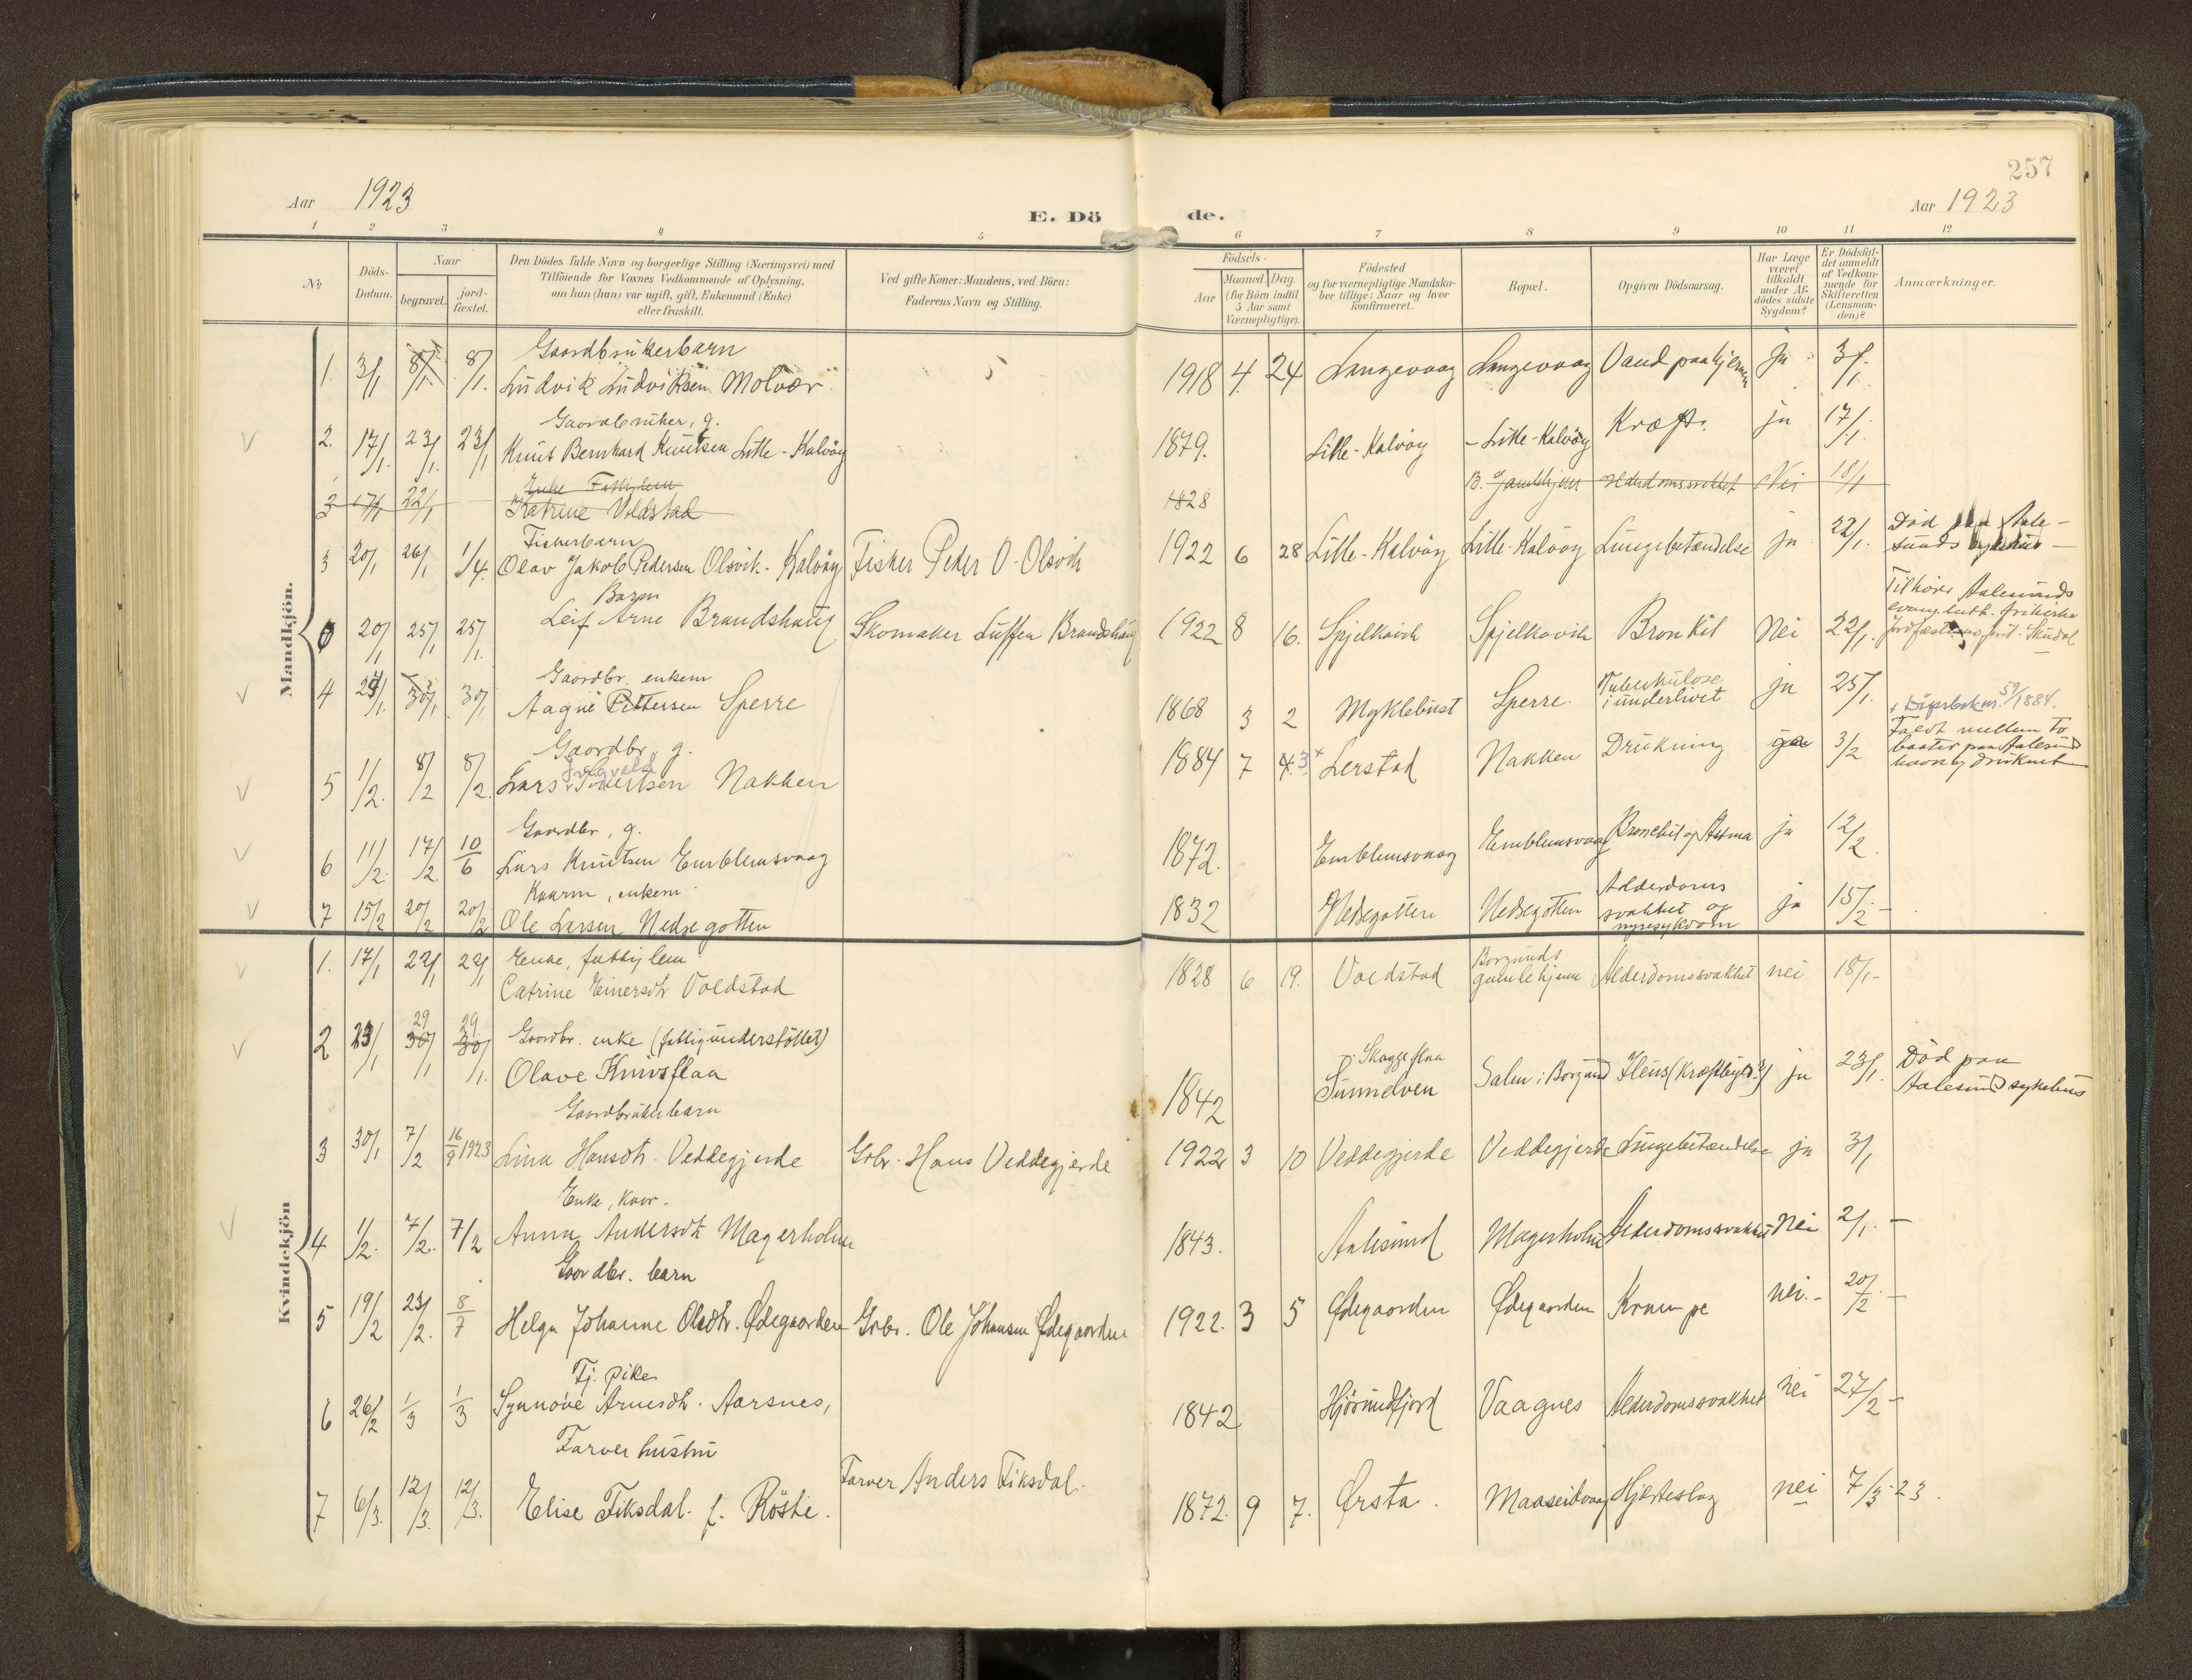 257
Aar 1923
E. Dö
de.
Aar 1923
1 2 3 4 5 6 7 8 9 10 11 12
No
Döds-Datum.
Naar
begravet.
jord-fæstet.
Den Dödes fulde Navn og borgerlige Stilling (Næringsvei) med
Tilföiende for Voxnes Vedkommende af Oplysning,
om han (hun) var ugift, gift, Enkemand (Enke)
eller fraskilt.
Ved gifte Koner: Mandens, ved Börn:
Faderens Navn og Stilling.
Födsels-
Aar
Maaned. Dag.
(for Börn indtil
5 Aar samt
Værnepligtige).
Födested
og for værnepligtige Mandska-
ber tillige: Naar og hvor
konfirmeret.
Bopæl.
Opgiven Dödsaarsag.
Har Læge
været
tilkaldt
under Af-
dödes sidste
Sygdom?
Er Dödsfal-
det anmeldt
af Vedkom-
mende for
Skifteretten
(Lensman-
den)?
Anmærkninger.
Mandkjön.
Gaardbrukerbarn
1. 3/1 8/1. 8/1. Ludvik Ludviksen Molvær 1918 4. 24 Langevaag Langevaag Vand paa hjernen ja 3/1.
Gaardbruker, g.
2. 17/1. 23/1. 23/1 Knut Bernhard Knutsen Lille-Kalvöy 1879. Lille-Kalvöy - Lille-Kalvöy Kræft. ja 17/1.
Enke Fattiglem
3 17/1 22/1 Katrine Voldstad 1828 B. Gamlehjem Alderdomssvakhet Nei 18/1
Fiskerbarn
3 20/1 26/1 1/4. Olav Jakob Pedersen Olsvik-Kalvöy Fisker Peder O. Olsvik 1922 6 28 Lille-Kalvöy Lille-Kalvöy Lungebetændelse ja 22/1. Död paa Aale-
sunds sykehus
Barn
0 20/1 25/1 25/1. Leif Arne Brandshaug Skomaker Brandshaug 1922 8 16. Spjelkavik Spjelkavik Bronkit nei 22/1. Tilhörer Aalesunds
evang. luth. frikirke
Gaardbr. enkem
4 24/1. 30/1 30/1 Aagne Pettersen Sperre 1868 3 2 Myklebust Sperre. Tuberkulose
i underlivet ja 25/1.
+ Döpsbok nr. 59/1884.
Gaardbr. g.
Ingvald
5 1/2. 8/2 8/2. Lars Sivertsen Nakken 1884 7 4. 3 + Lerstad Nakken Drukning ja 3/2 Faldt mellem to
baater paa Aalesund
havn og druknet
Gaardbr, g.
6 11/2. 17/2 10/6 Lars Knutsen Emblemsvaag 1872. Emblemsvaag Emblemsvaag Bronchit og Astma ja 12/2.
Kaarm, enkem.
7 15/2 20/2 20/2 Ole Larsen Nedregotten 1832 Nedregotten Nedregotten Alderdoms
svakhet og
nyresykdom ja 15/2-
Kvindekjön
1. 17/1 22/1 22/1 Enke, fattiglem
Catrine Einersdtr Voldstad 1828 6 19. Voldstad Borgunds
gamlehjem Alderdomssvakhet nei 18/1-
29 29
2 23/1 30/1 30/1. Gaardbr. enke (fattigunderstöttet)
Olave Knivsflaa 1842 Skaggeflaa
Sunnelven Salen i Borgund Ileus (Kræftbyld?) ja 23/1. Död paa
Aalesund sykehus
Gaardbrukerbarn
3 30/1 7/2 16/9 1923 Lina Hansdtr. Veddegjerde Grbr. Hans Veddegjerde 1922 3 10 Veddegjerde Veddegjerde Lungebetændelse ja 3/1
Enke, kaar-
4 1/2. 7/2. 7/2 Anna Andersdtr Magerholm 1843. Aalesund Magerholm Alderdomssvakhet nei 2/1. -
Gaardbr. barn
5 19/2 23/2. 8/7 Helga Johanne Olsdtr. Ødegaarden Grbr. Ole Johansen Ødegaarden 1922. 3 5 Ødegaarden Ødegaarden Krampe nei. - 20/2. -
Tj. pike
6 26/2 1/3 1/3 Synnöve Arnesdtr. Aarsnes, 1842 Hjörundfjord Vaagnes Alderdomssvakhet nei 27/2 -
Farver hustru
7 6/3. 12/3. 12/3. Elise Fiksdal. f. Röste. Farver Anders Fiksdal. 1872. 9 7. Ørsta. Maaseidvaag Hjerteslag nei 7/3-23.